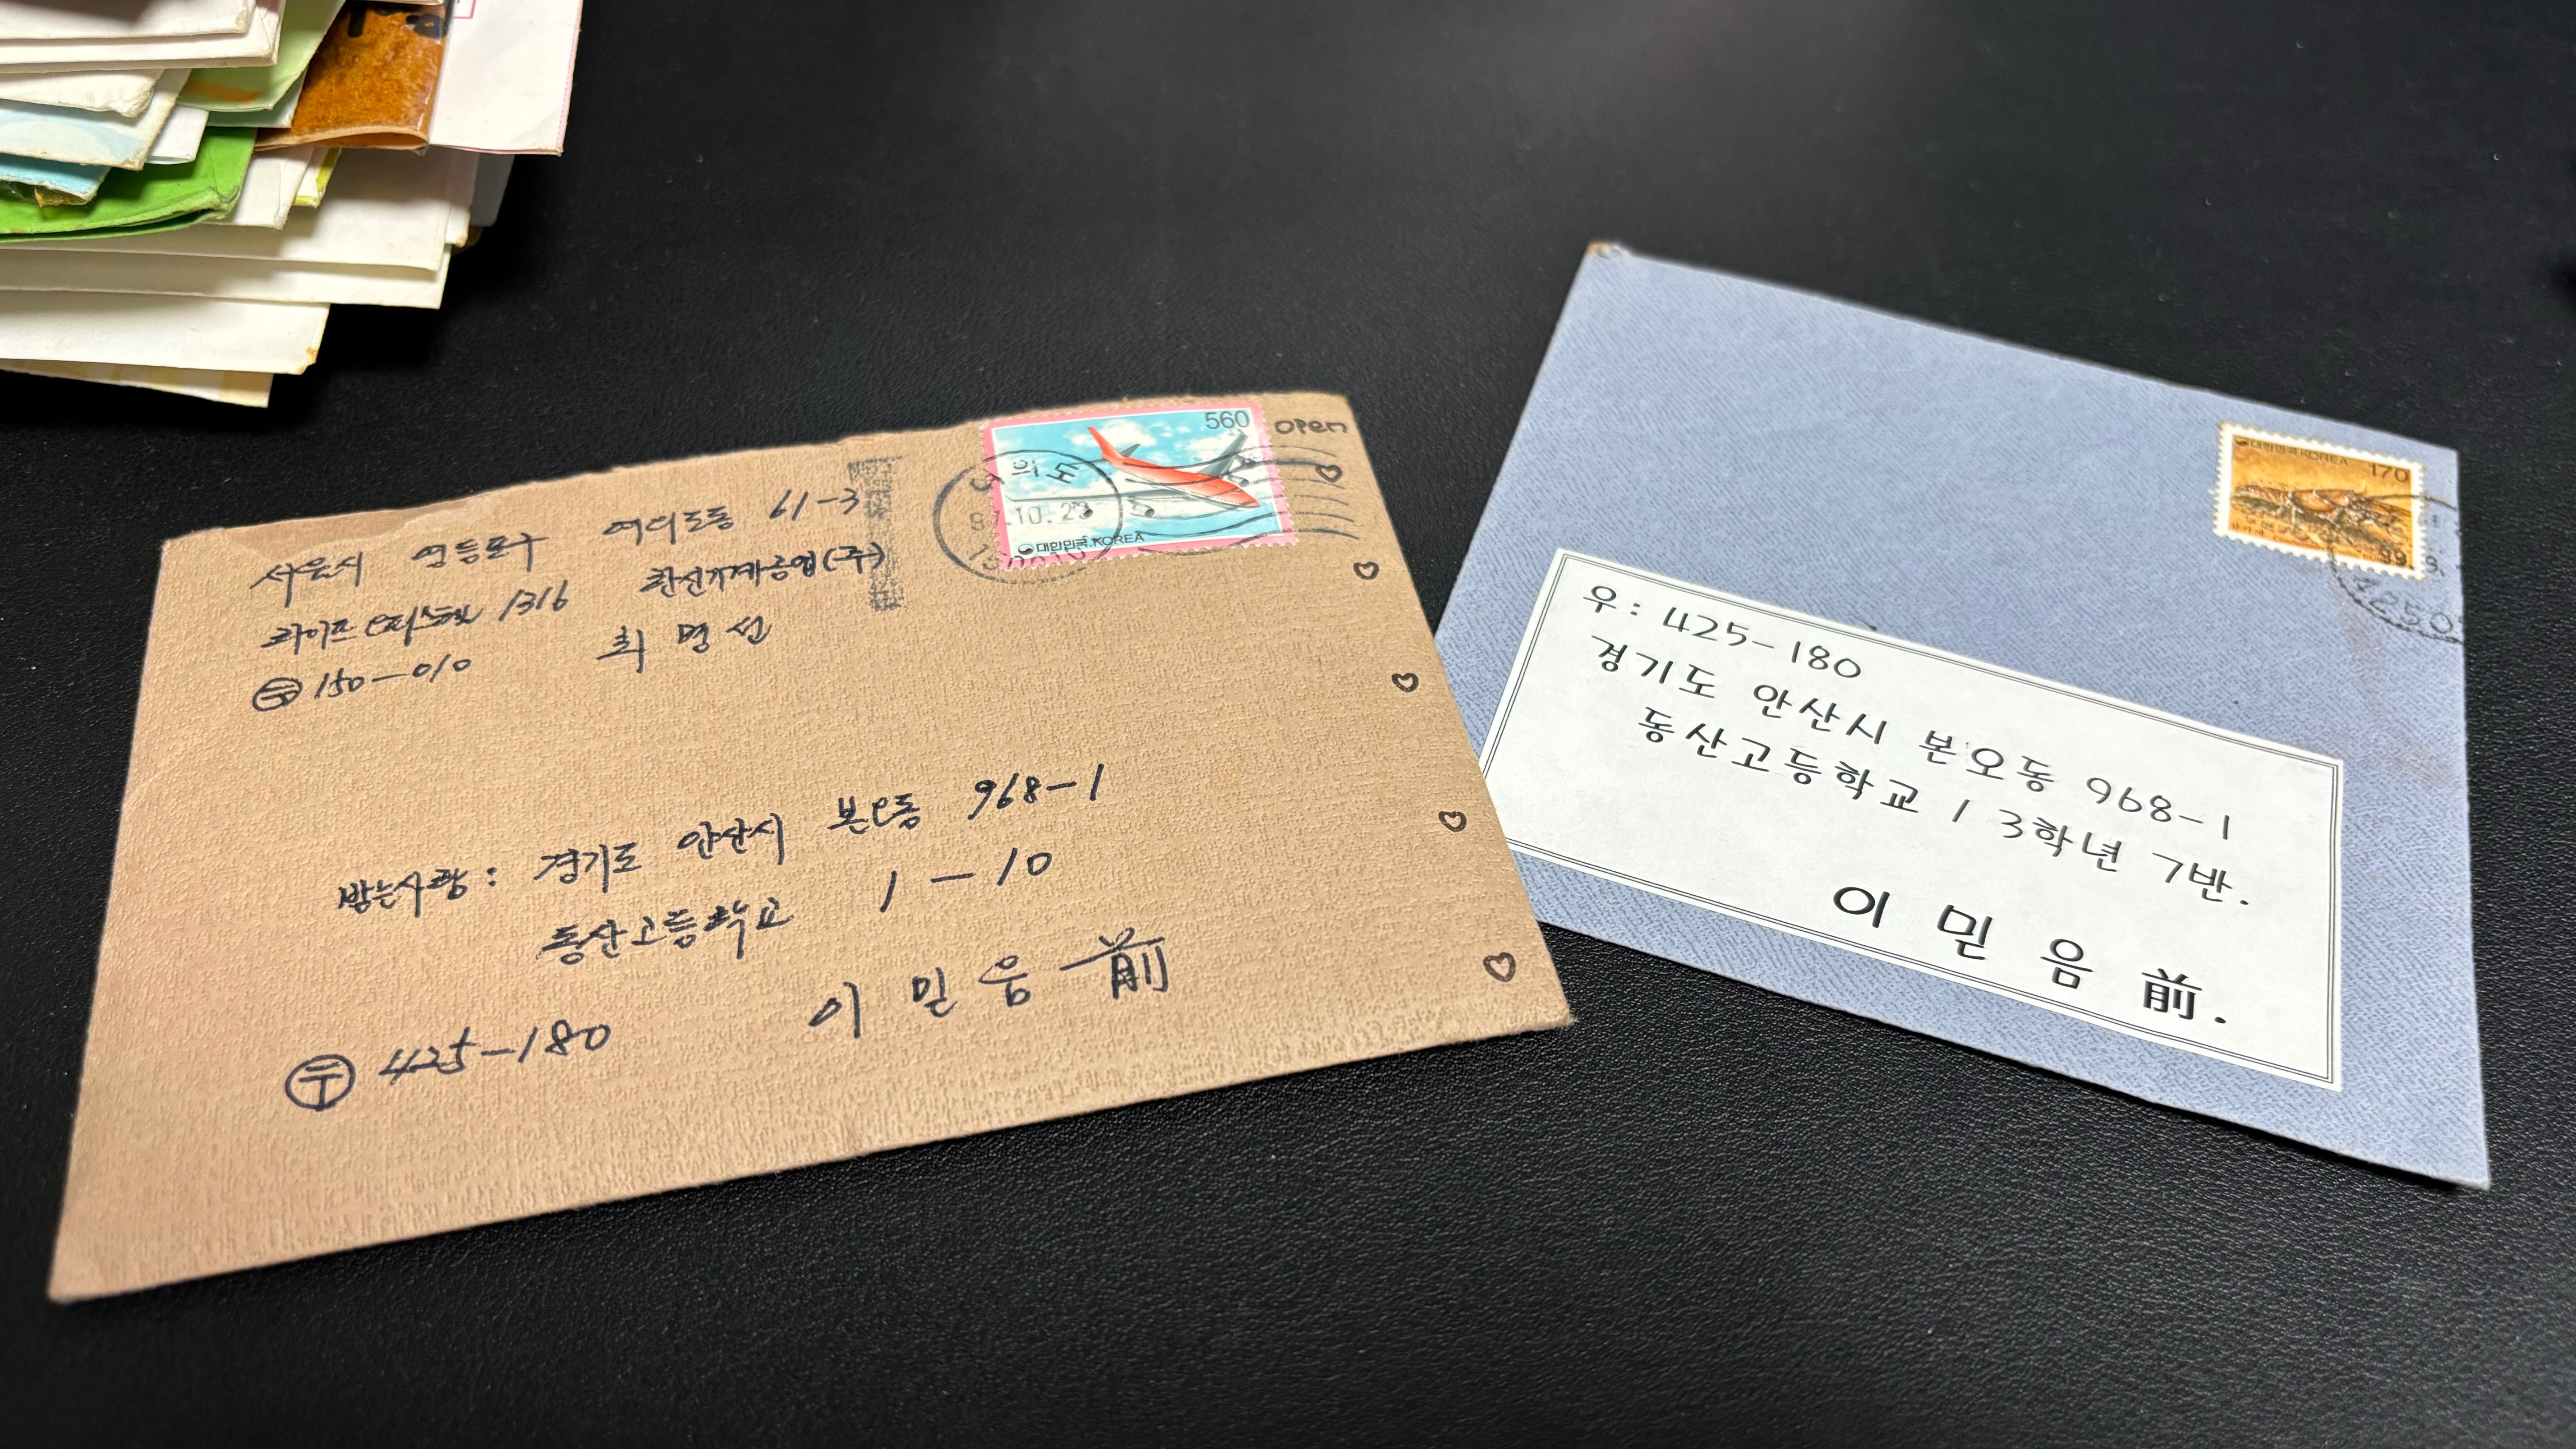 서울시 영등포구 여의도동 61-3
라이프 오피스텔 1316 환신기계공업(주)
우 150-010 최명선
560
대한민국 KOREA
open
의도
10.23
받는사람: 경기도 안산시 본오동 968-1
동산고등학교 1-10
이믿음 前
우 425-180
대한민국 KOREA
170
우: 425-180
경기도 안산시 본오동 968-1
동산고등학교 / 3학년 7반.
이믿음 前.